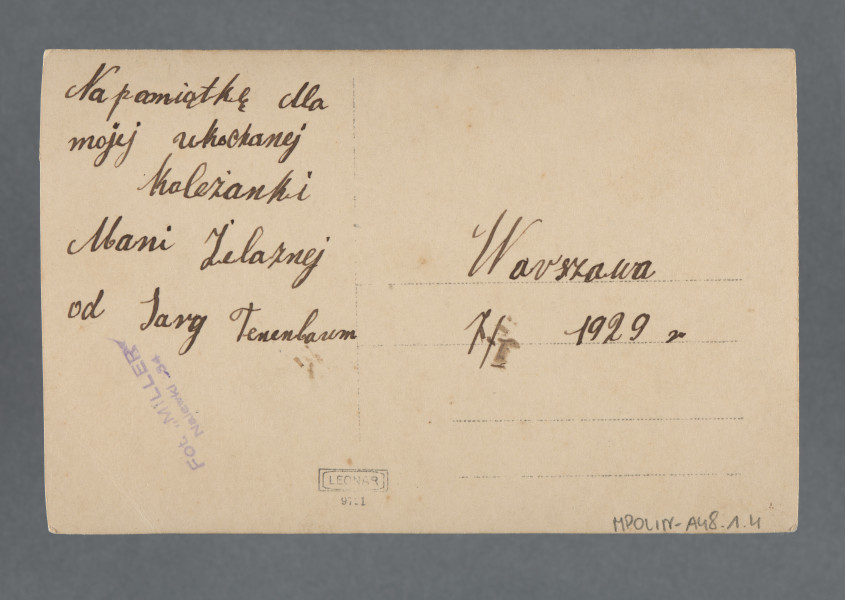 Na pamiątkę dla
mojej ukochanej
koleżanki
Mani Żelaznej
od Sary Tenenbaum
Warszawa
1929 r
Fot. „MILLER
Nalewki 34
LEONAR
MPOLIN-A48.1.4